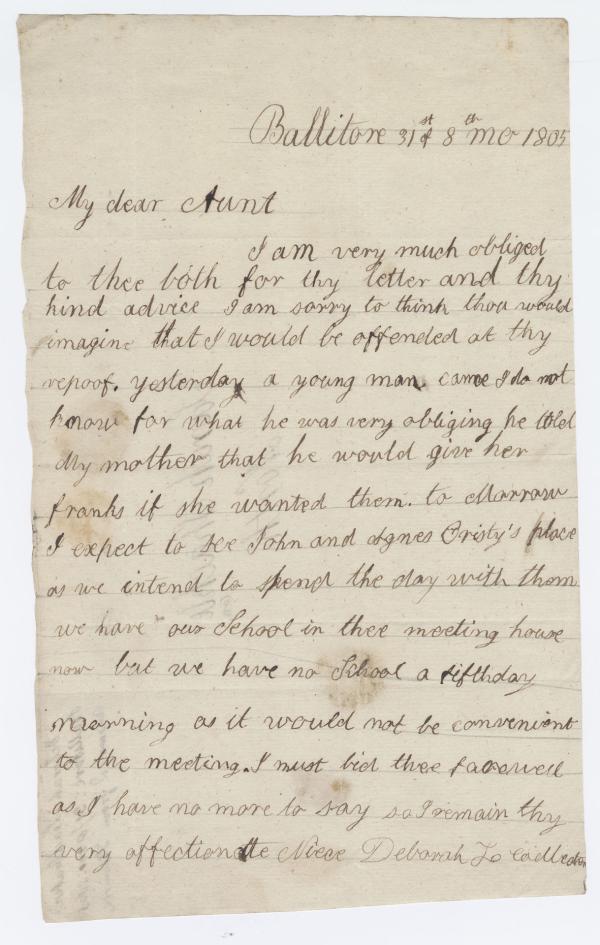 Ballitore 31st of 8th mo 1805
My dear Aunt
I am very much obliged
to thee both for thy letter and thy
kind advice I am sorry to think thou would
imagine that I would be offended at thy
repoof. yesterday a young man came I do not
know for what he was very obliging he told
My mother that he would give her
franks if she wanted them. to Morrow
I expect to see John and Agnes Cristy's place
as we intend to spend the day with them
we have our School in thee meeting house
now but we have no School a fifthday
morning as it would not be convenient
to the meeting. I must bid thee farewell
as I have no more to say so I remain thy
very affectionatte Niece Deborah